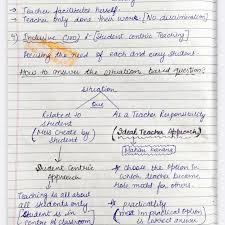 → Teacher facilitates herself.
→ Teacher only done their work. [No discrimination]
4) Inclusive (am) & [Student centric Teaching]
Focusing the need of each and every student.
How to answer the situation based question:
situation
One
Related to student
(Mess create by student)
As a Teacher Responsibility
(Ideal Teacher Approach)
Student Centric Approach
→ choose the option in which teacher become role model for others.
Teaching is all about all students only
Student is in centre of classroom
→ practicality
(most practical option is correct answer